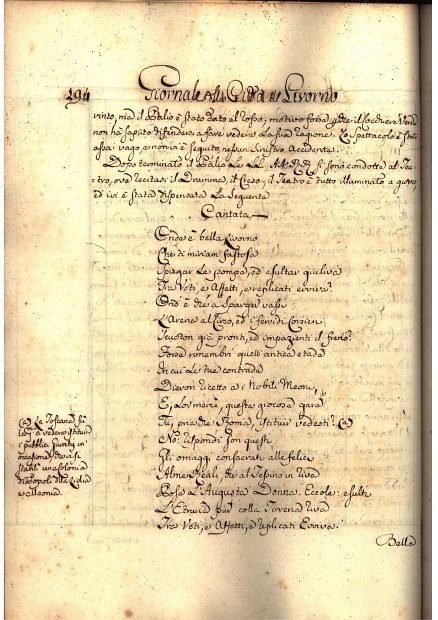 194 Giornale della Città di Livorno
vinto, ma il Palio è stato dato al rosso, motivo forse che il Locchere Verde
non ha saputo difendersi a fare vedere la sua ragione. Lo Spettacolo è stato
assai vago, e non vi è seguito, nessun Sinistro Accidente.
Dopo terminato il Palio le LL. AA. RR. si sono condotte al Tea-
tro, ove recitasi il Dramma, il Creso, il Teatro è tutto illuminato a giorno
ed ivi è stata dispensata la Seguente
Cantata
Onde è bella Livorno
Che ti miriam fastosa
Spiegar le pompe, ed esultar giuliva
Tra Voti, e Affetti, e replicati evviva?
Ond' è che a sparger vassi
L'Arene al Circo, ed i fervidi Corsieri
pronti, ed impazienti il freno?
Forse rimembri quell' antica etade
In cui le tue contrade
Dieron ricetto a i Nobili Meoni,
E, lor mercè, questa giocosa gara
Tu, pria che Roma, istituir vedesti? (a)
No: rispondi son questi
Gli omaggi consacrati alle felici
Alme Reali, che al Tessino in riva
L'Augusta Donna. Eccole: esulti
L'Etruria pur colla Tirrena riva
Tra Voti, e Affetti, e replicati Evviva.
(a) La Toscana fu
la a vedere istituiti
i pubblici Giuochi in
occasione, che vi si
stabilì una colonia
di popoli della Lidia
e Meonia.
Bella